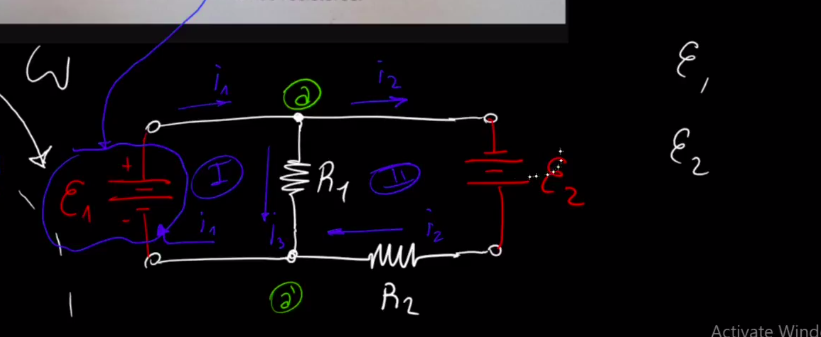 i₁ a i₂
ε₁
ε₂
+
ε₁ I R₁ II ε₂
-
i₁ i₃ i₂
a' R₂
Activate Wind